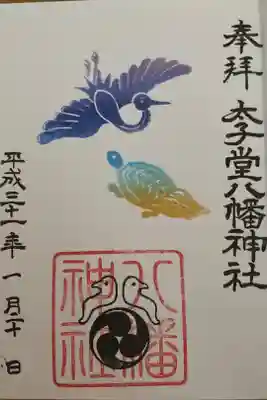 奉拝 太子堂八幡神社
八幡神社
平成三十一年一月二十日